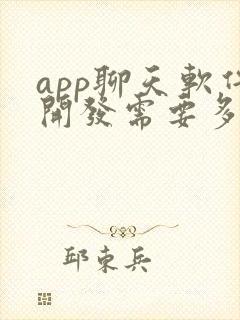 app聊天軟件
開發需要多
邱東兵